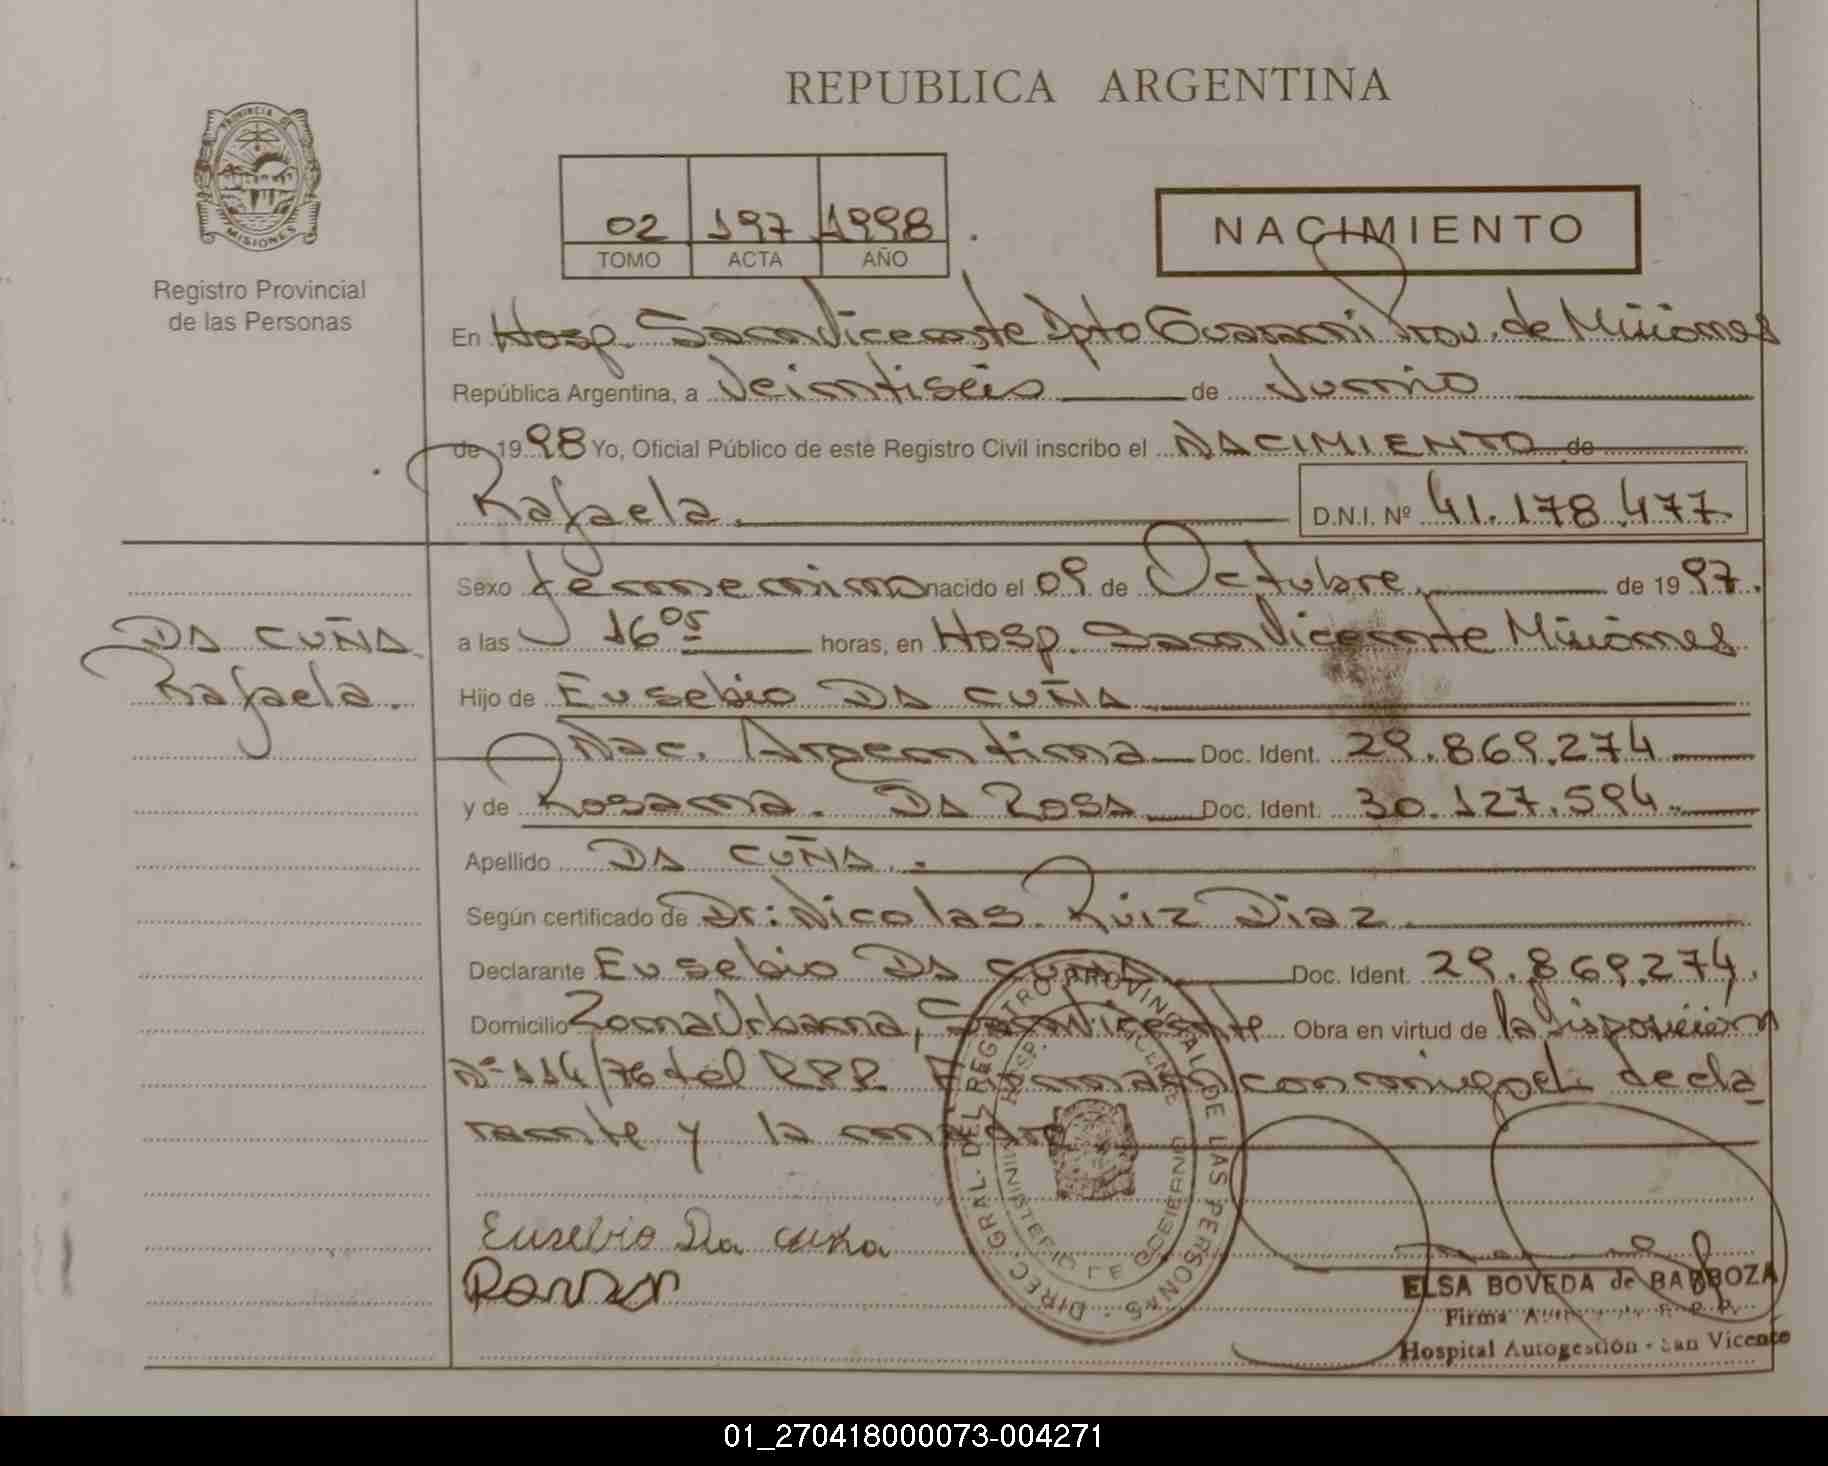 REPUBLICA ARGENTINA
PROVINCIA DE
MISIONES
Registro Provincial
de las Personas
02 197 1998
TOMO ACTA AÑO
NACIMIENTO
En Hosp. San Vicente Dpto Guaraní Prov. de Misiones
República Argentina, a Veintiséis de Junio
de 1998 Yo, Oficial Público de este Registro Civil inscribo el NACIMIENTO de
Rafaela. D.N.I. Nº 41.178.477
Sexo femenino nacido el 09 de Octubre, de 1997.
a las 16 05 horas, en Hosp. San Vicente Misiones
DA CUÑA
Rafaela.
Hijo de Eusebio DA CUÑA
Nac. Argentina Doc. Ident. 29.869.274
y de Rosana. DA ROSA Doc. Ident. 30.127.594
Apellido DA CUÑA.
Según certificado de Dr: Nicolas Ruiz Diaz
Declarante Eusebio DA CUÑA Doc. Ident. 29.869.274.
Domicilio Zona Urbana, San Vicente Obra en virtud de la Disposición
Nº 114/76 del R.P.P. Firman conmigo el decla
rante y la madre
Eusebio Da cuña
DIREC. GRAL. DEL REGISTRO PROVINCIAL DE LAS PERSONAS
HOSP. VICENTE
MINISTERIO DE GOBIERNO
ELSA BOVEDA de BARBOZA
Firma R. P. P.
Hospital Autogestión - San Vicente
01_270418000073-004271